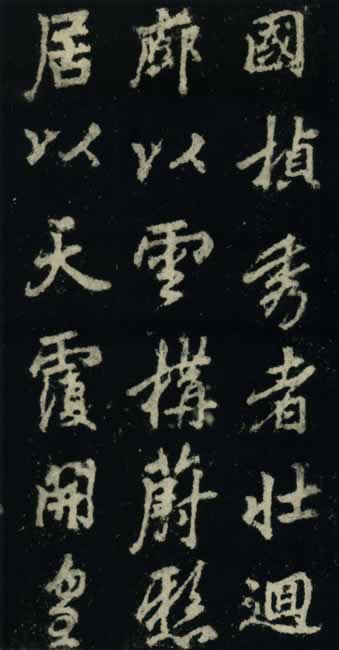 國楨秀者壯迴
廊以雲構蔚懸
居以天覆開皇